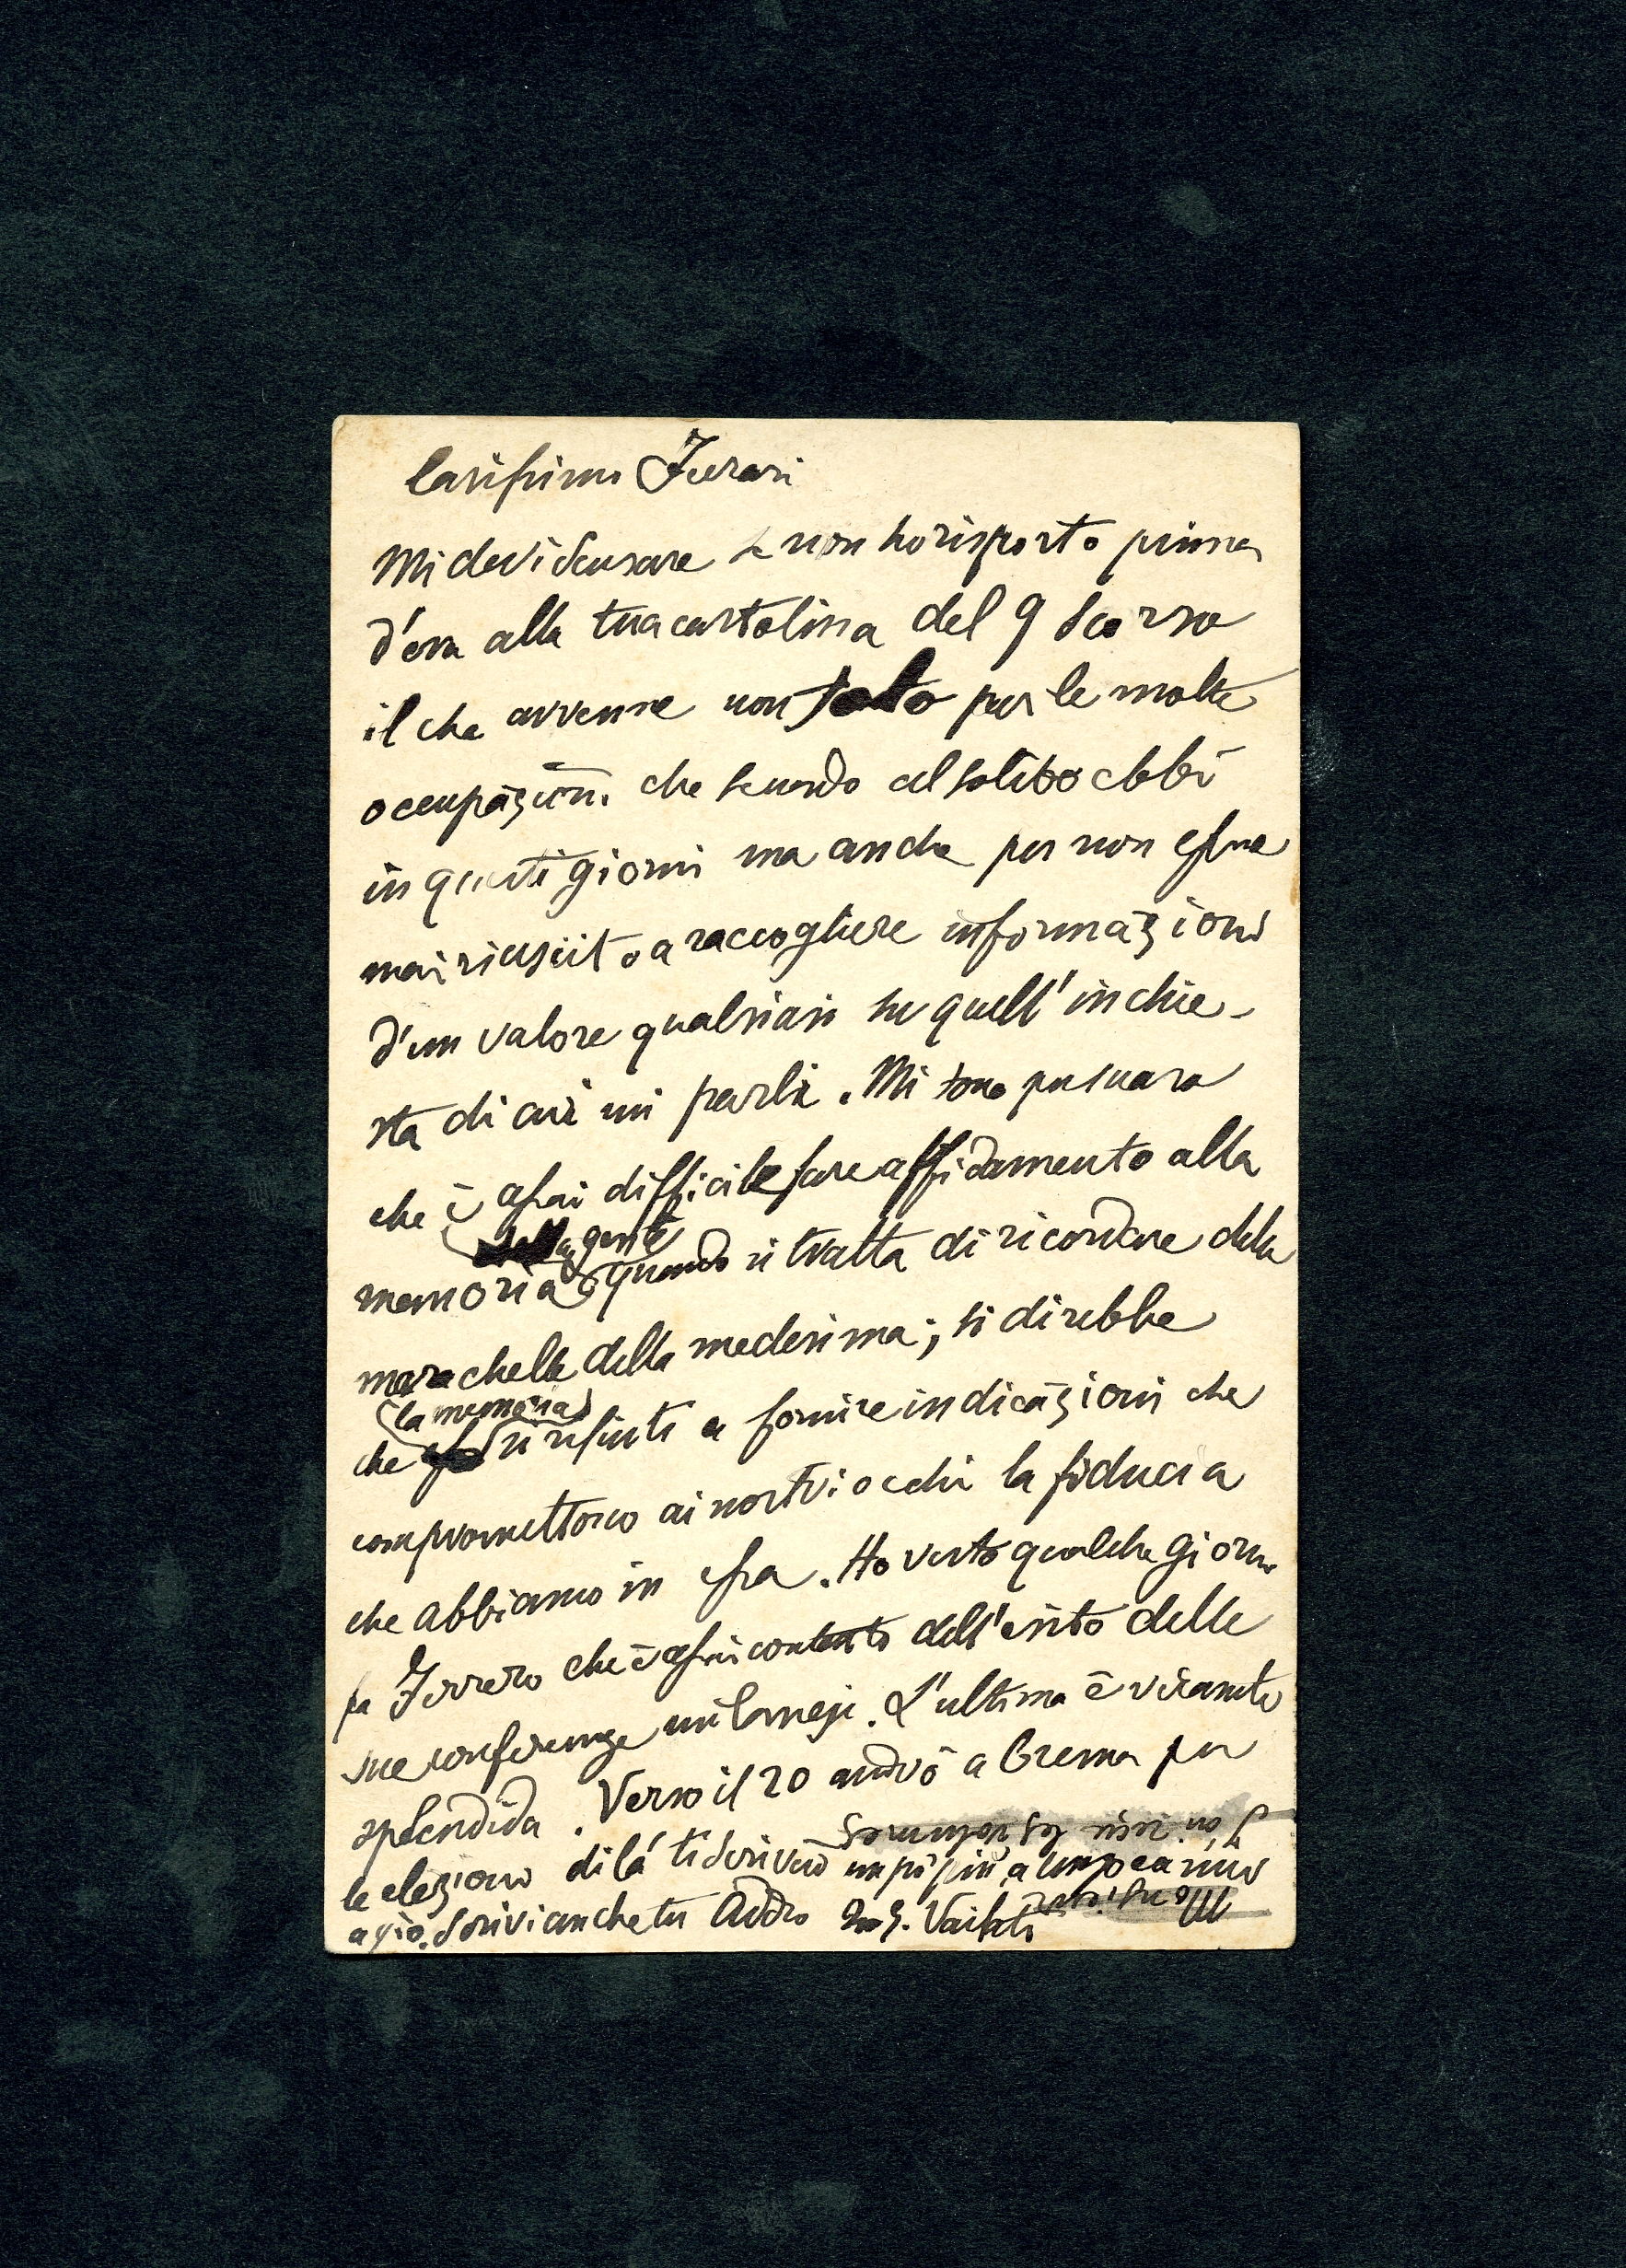 Carissimo Ferrari
Mi devi scusare se non ho risposto prima
d'ora alla tua cartolina del 9 scorso
il che avvenne non solo per le molte
occupazioni che secondo al solito ebbi
in questi giorni ma anche per non essere
mai riuscito a raccogliere informazioni
d'un valore qualsiasi su quell'inchie-
sta di cui mi parli. Mi sono persuaso
che è assai difficile fare affidamento alla
della gente
memoria quando si tratta di ricordare delle
marachelle della medesima; si direbbe
(la memoria)
che si rifiuti a fornire indicazioni che
compromettono ai nostri occhi la fiducia
che abbiamo in essa. Ho visto qualche giorno
fa Ferrero che è assai contento dell'esito delle
sue conferenze milanesi. L'ultima è veramente
splendida. Verso il 20 andrò a Crema per
le elezioni di là ti scriverò un po' più a lungo e a mio
agio. Scrivi anche tu Addio G. Vailati